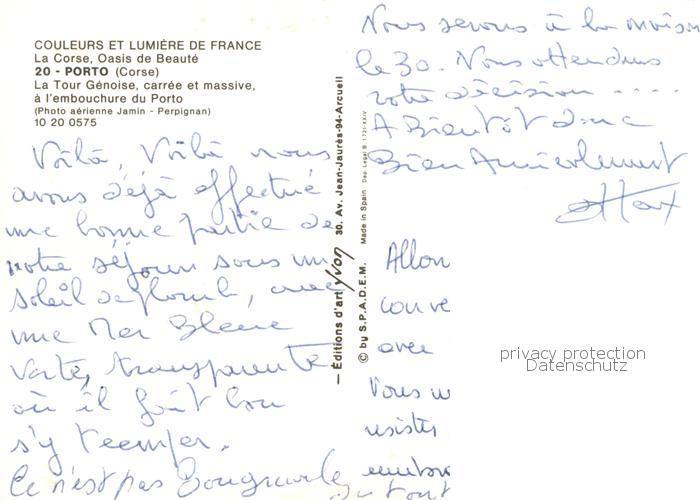 COULEURS ET LUMIÈRE DE FRANCE
La Corse, Oasis de Beauté
20 - PORTO (Corse)
La Tour Génoise, carrée et massive,
à l'embouchure du Porto
(Photo aérienne Jamin - Perpignan)
10 20 0575
Voilà, Voilà nous
avons déjà effectué
une bonne partie de
notre séjour sous un
soleil de plomb, avec
une Mer Bleue
Verte, transparente
où il fait bon
s'y tremper.
Ce n'est pas
— Éditions d'art Yvon 30, Av. Jean-Jaurès-94-Arcueil
© by S.P.A.D.E.M. Made in Spain Dep. Legal B. 1721-XXIV
Nous serons à la maison
le 30. Nous attendons
votre décision .....
A Bientôt donc
Bien Amicalement
Allon
conve
avec
Vous
surtout
privacy protection
Datenschutz